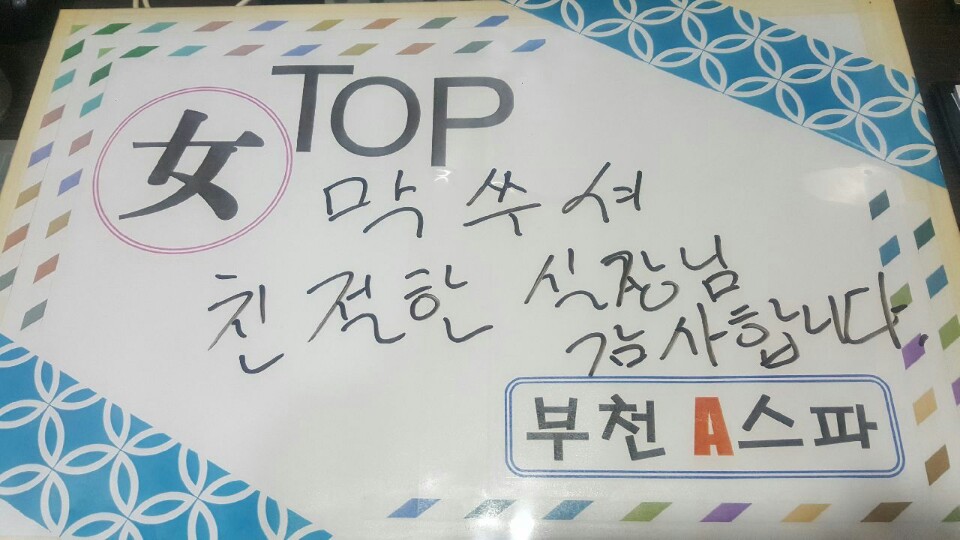 女 TOP
막 쑤셔
친절한 실장님
감사합니다.
부천 A스파